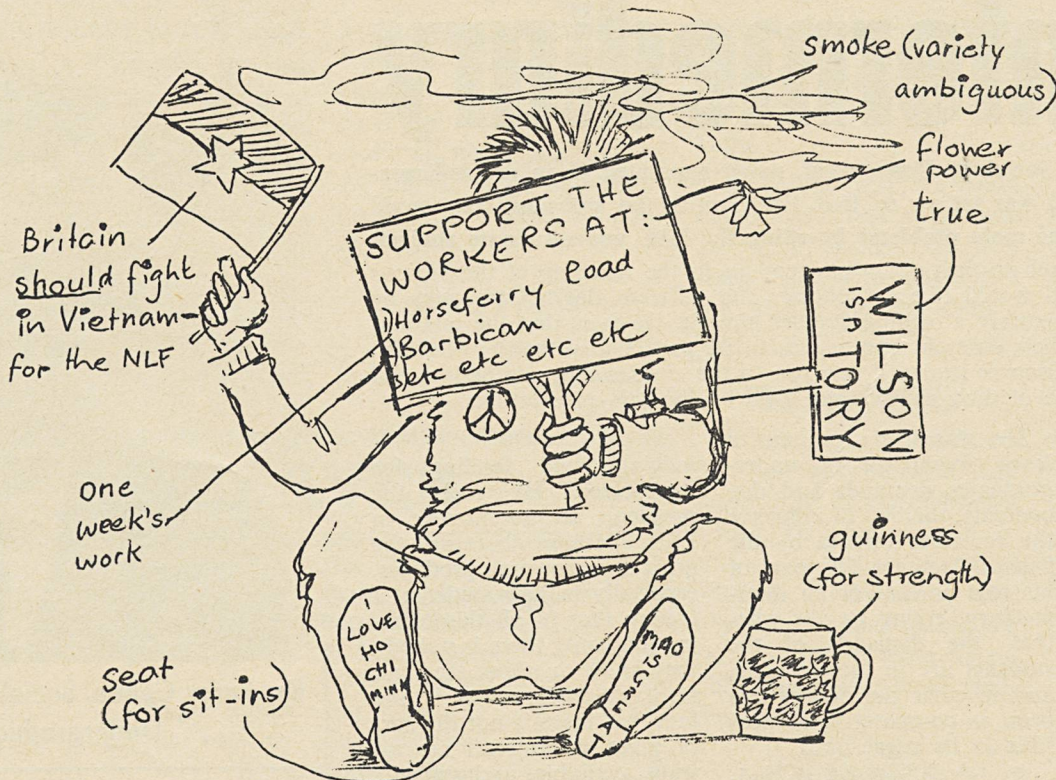 smoke (variety
ambiguous)
flower
power
true
Britain
should fight
in Vietnam-
for the NLF
SUPPORT THE
WORKERS AT:
1)Horseferry Road
2)Barbican
3)etc etc etc etc
WILSON
IS A
TORY
one
week's
work
guinness
(for strength)
I
LOVE
HO
CHI
MINH
MAO
IS GREAT
seat
(for sit-ins)